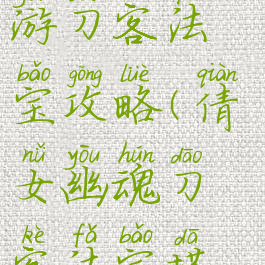 游刀客法
bǎo gōng lüè qiàn
宝攻略(倩
nǚ yōu hún dāo
女幽魂刀
kè fǎ bǎo dā